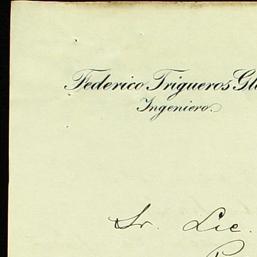 Federico Trigueros
Ingeniero.
Sr. Lic.